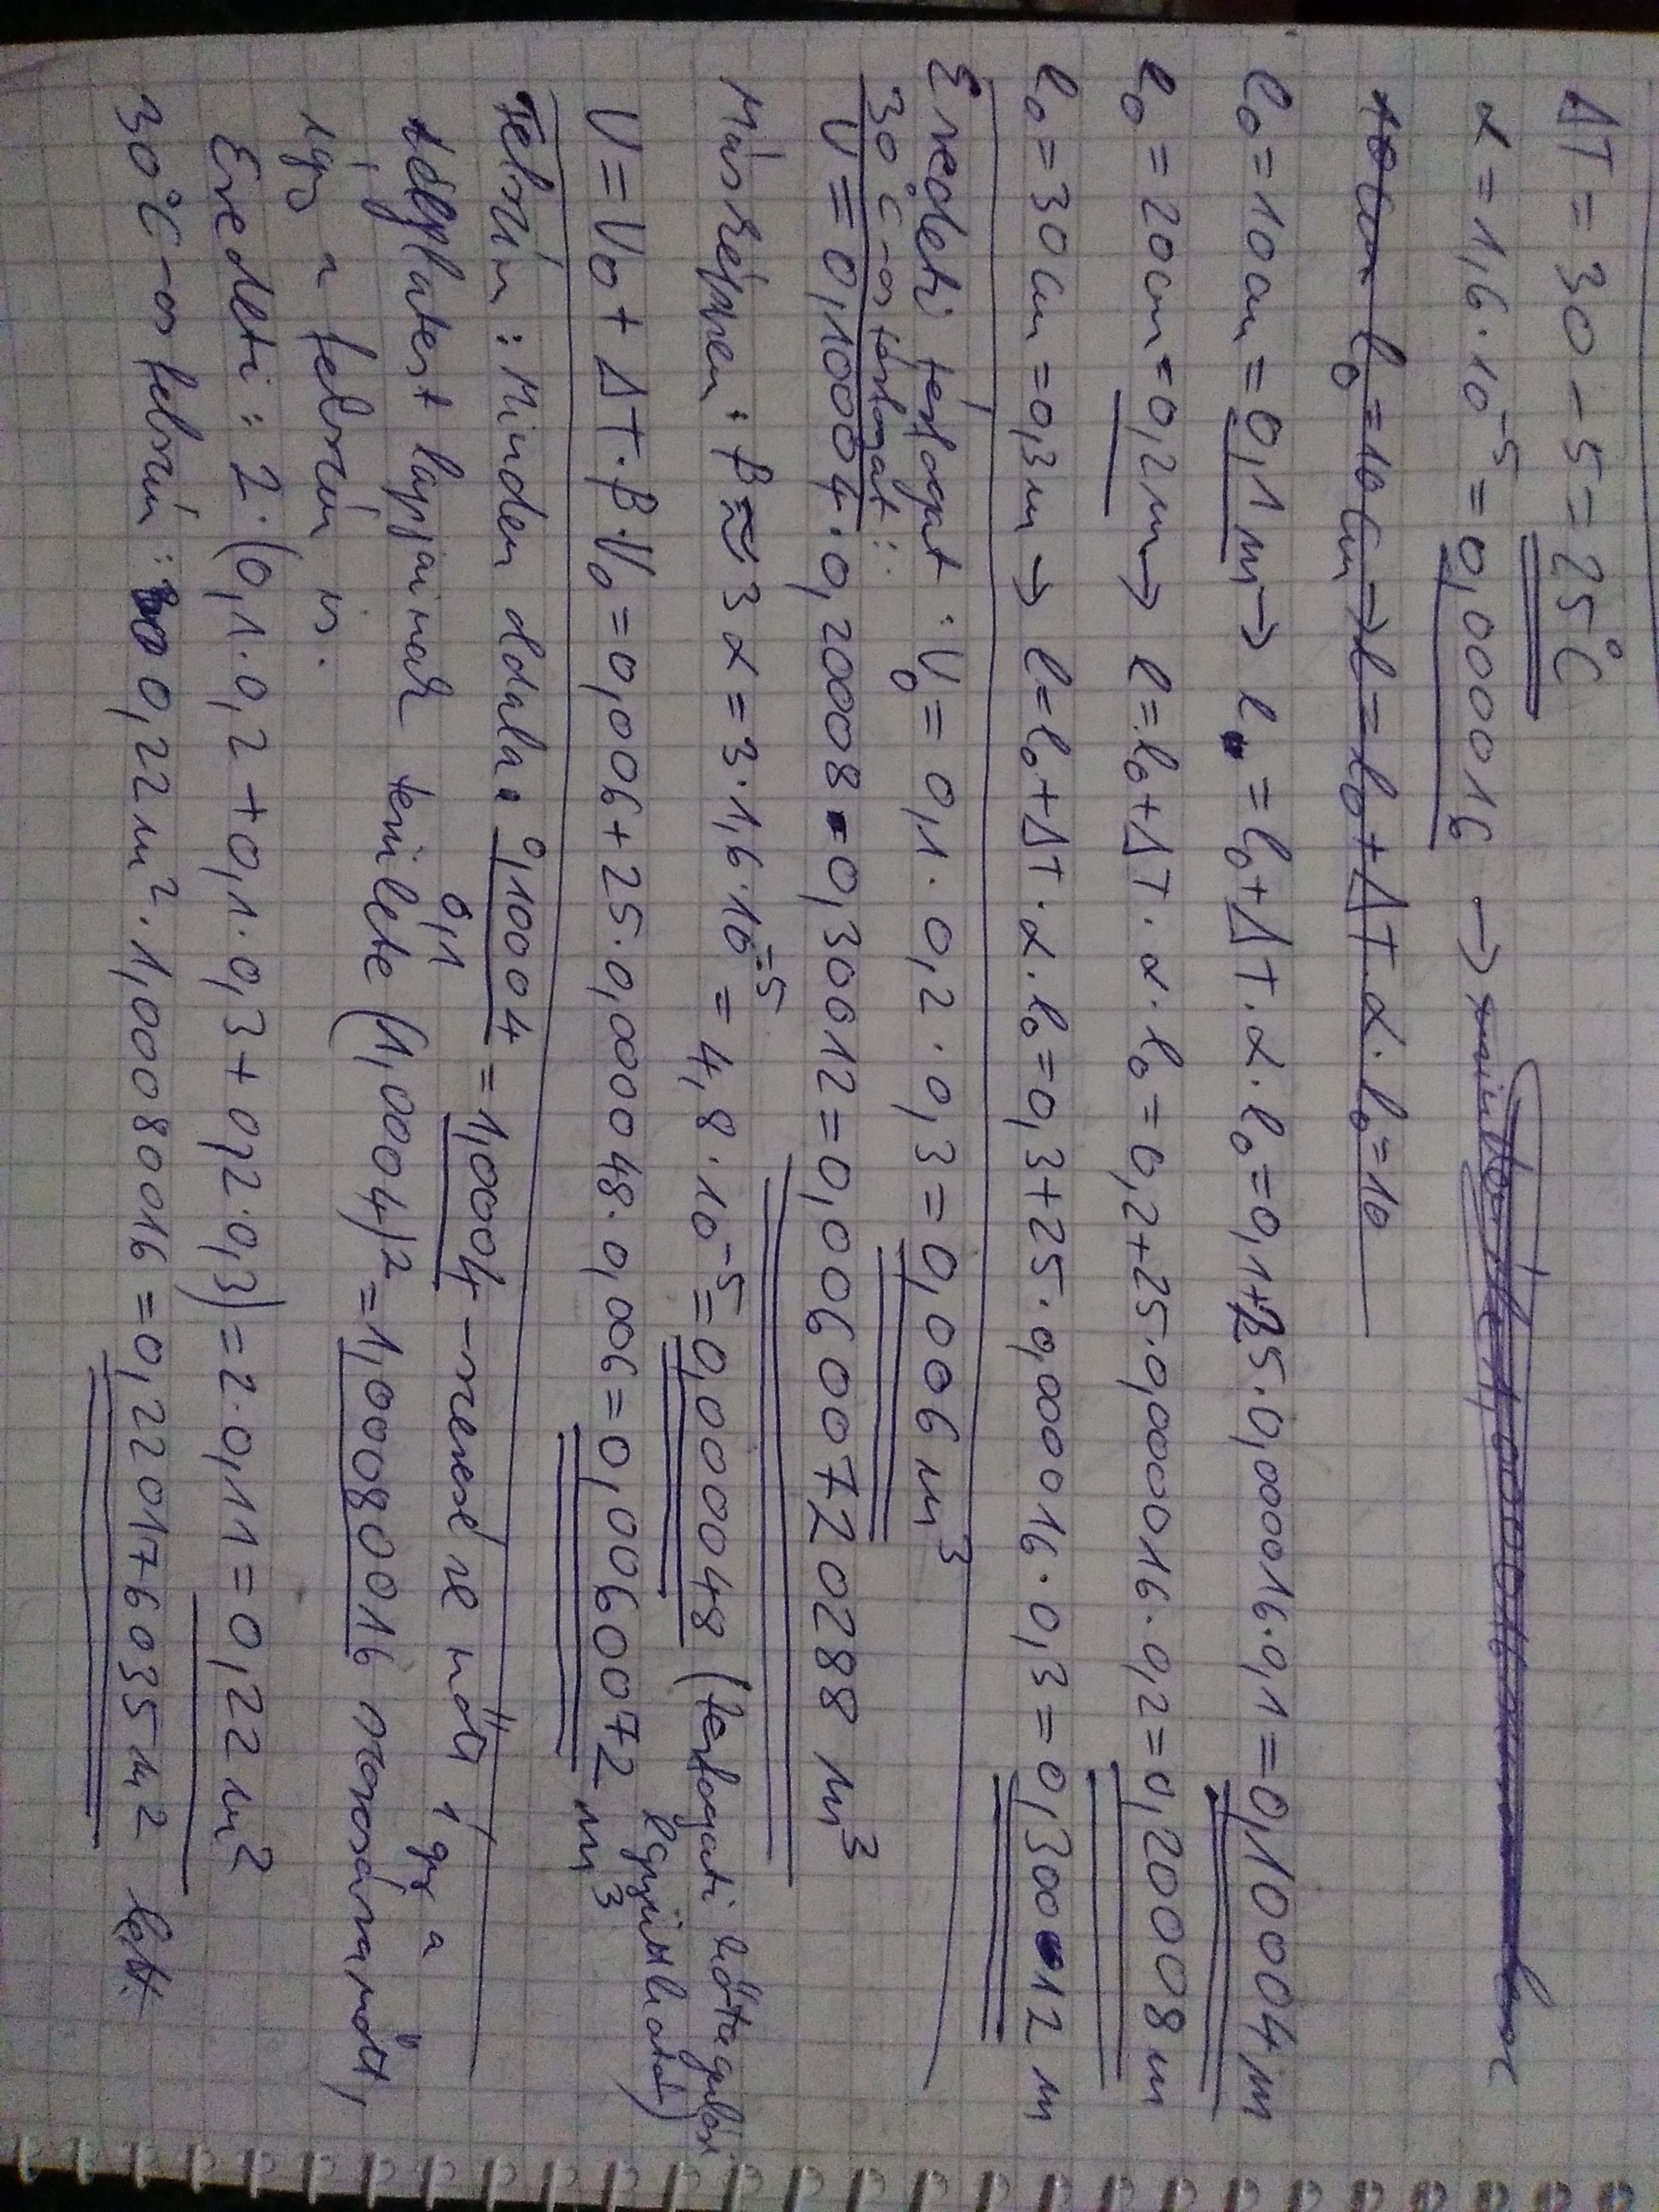 ΔT = 30 - 5 = 25°C
α = 1,6 · 10⁻⁵ = 0,000016 →
10cm l₀ = 10 cm → l = l₀ + ΔT · α · l₀ = 10
l₀ = 10cm = 0,1 m → l = l₀ + ΔT · α · l₀ = 0,1 + 25 · 0,000016 · 0,1 = 0,10004 m
l₀ = 20cm = 0,2 m → l = l₀ + ΔT · α · l₀ = 0,2 + 25 · 0,000016 · 0,2 = 0,20008 m
l₀ = 30cm = 0,3 m → l = l₀ + ΔT · α · l₀ = 0,3 + 25 · 0,000016 · 0,3 = 0,30012 m
Eredeti térfogat: V₀ = 0,1 · 0,2 · 0,3 = 0,006 m³
30°C-os térfogat:
V = 0,10004 · 0,20008 · 0,30012 = 0,00600720288 m³
Másképpen: β ≈ 3α = 3 · 1,6 · 10⁻⁵ = 4,8 · 10⁻⁵ = 0,000048 (térfogati hőtágulási
együttható)
V = V₀ + ΔT · β · V₀ = 0,006 + 25 · 0,000048 · 0,006 = 0,0060072 m³
Felszín: Minden oldala: 0,10004 / 0,1 = 1,0004 -szeresére nőtt, így a
téglatest lapjainak területe (1,0004)² = 1,00080016 szorosára nőtt,
így a felszín is.
Eredeti: 2 · (0,1 · 0,2 + 0,1 · 0,3 + 0,2 · 0,3) = 2 · 0,11 = 0,22 m²
30°C-os felszín: 0,22 m² · 1,00080016 = 0,220176035 m² lett.